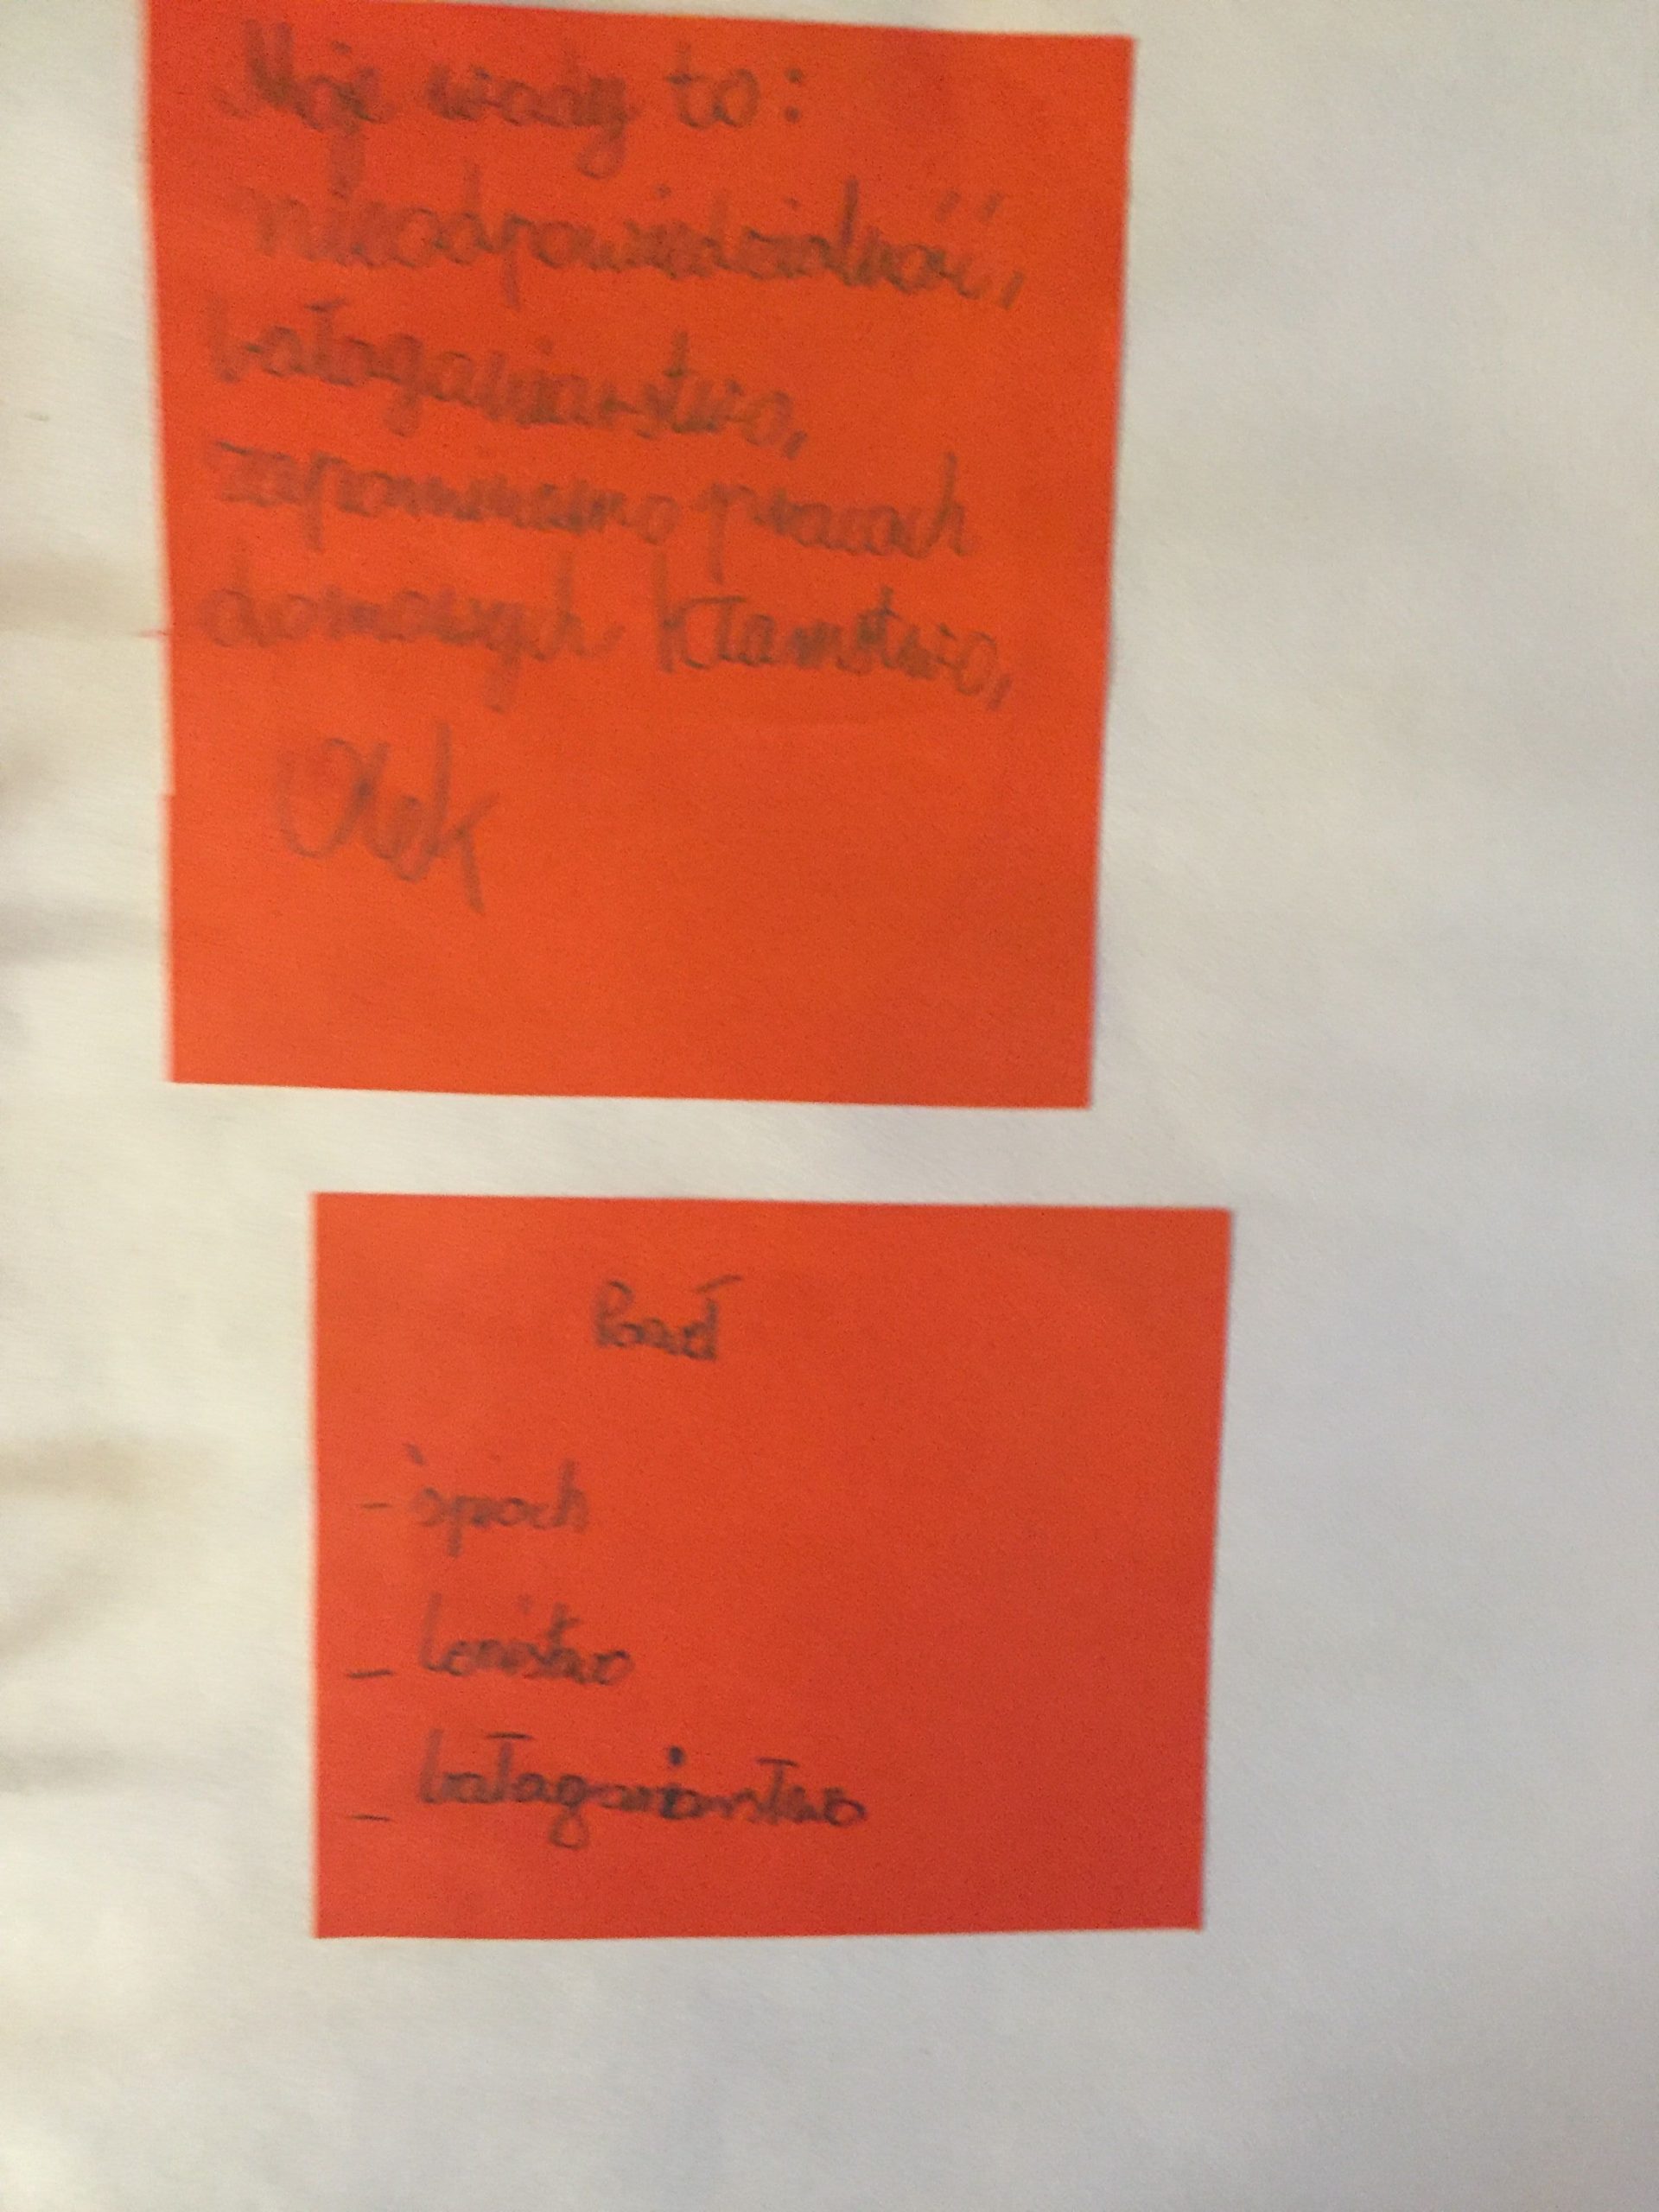 Moje wady to:
nieodpowiedzialność,
bałaganiarstwo,
zapominam o pracach
domowych, kłamstwo,
Olek
Paweł
- śpioch
- lenistwo
- bałaganiarstwo